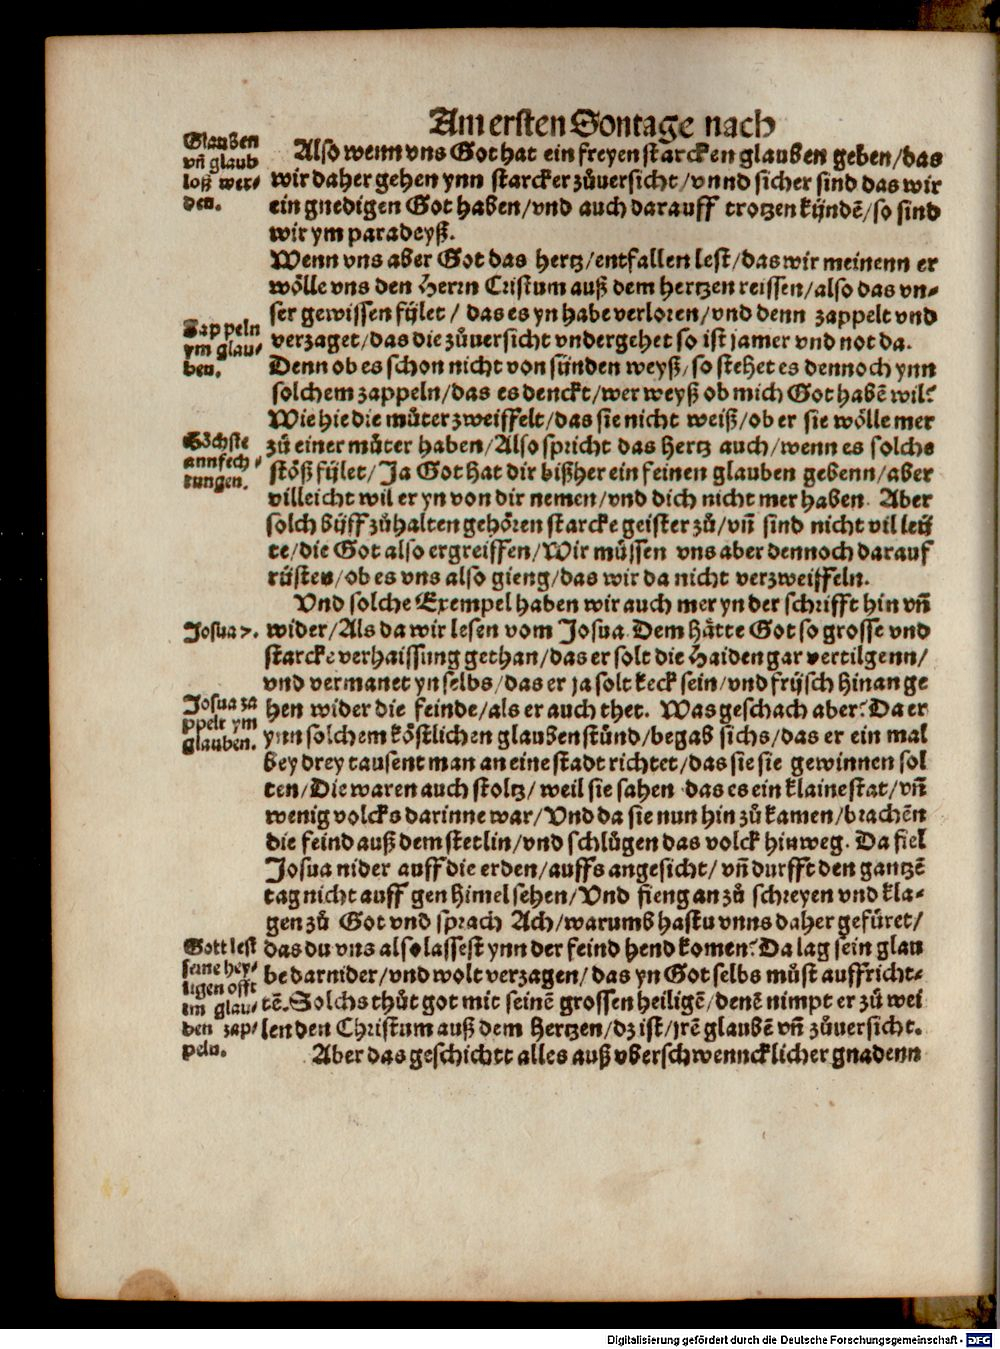 Am ersten Sontage nach
Glauben
vñ glaub
loß wer-
den.
Also wenn vns Got hat ein freyen starcken glauben geben/das
wir daher gehen ynn starcker zůuersicht/vnnd sicher sind das wir
ein gnedigen Got haben/vnd auch darauff trotzen kündē/so sind
wir ym paradeyß.
Wenn vns aber Got das hertz/entfallen lest/das wir meinenn er
wölle vns den Herrn Cristum auß dem hertzen reissen/also das vn-
ser gewissen fület/ das es yn habe verloren/vnd denn zappelt vnd
Zappeln
ym glau-
ben.
verzaget/das die zůuersicht vndergehet so ist jamer vnd not da.
Denn ob es schon nicht von sünden weyß/so stehet es dennoch ynn
solchem zappeln/das es denckt/wer weyß ob mich Got habē wil?
Wie hie die můter zweiffelt/das sie nicht weiß/ob er sie wölle mer
Höchste
annfech-
tungen.
zů einer můter haben/Also spricht das hertz auch/wenn es solche
stöß fület/Ja Got hat dir bißher ein feinen glauben gebenn/aber
villeicht wil er yn von dir nemen/vnd dich nicht mer haben. Aber
solch büff zůhalten gehören starcke geister zů/vñ sind nicht vil leü
te/die Got also ergreiffen/Wir müssen vns aber dennoch darauf
rüsten/ob es vns also gieng/das wir da nicht verzweiffeln.
Vnd solche Exempel haben wir auch mer yn der schrifft hin vñ
Josua 7.
wider/Als da wir lesen vom Josua. Dem hätte Got so grosse vnd
starcke verhaissung gethan/das er solt die Haiden gar vertilgenn/
vnd vermanet yn selbs/das er ja solt keck sein/vnd frisch hinan ge
Josua za
ppelt ym
glauben.
hen wider die feinde/als er auch thet. Was geschach aber? Da er
ynn solchem köstlichen glauben stünd/begab sichs/das er ein mal
bey drey tausent man an eine stadt richtet/das sie sie gewinnen sol
ten/Die waren auch stoltz/weil sie sahen das es ein klaine stat/vñ
wenig volcks darinne war/Vnd da sie nun hin zů kamen/brachēn
die feind auß dem stetlin/vnd schlügen das volck hinweg. Da fiel
Josua nider auff die erden/auffs angesicht/vñ durfft den gantzē
tag nicht auff gen himel sehen/Vnd fieng an zů schreyen vnd kla-
gen zů Got vnd sprach Ach/warumb hastu vnns daher gefüret/
Gott lest
seine hey-
ligen offt
im glau-
ben zap-
peln.
das du vns also lassest ynn der feind hend komen? Da lag sein glau
be darnider/vnd wolt verzagen/das yn Got selbs můst auffricht-
tē. Solchs thůt got mit seinē grossen heiligē/denē nimpt er zů wei
len den Christum auß dem Hertzen/dz ist/jrē glaubē vñ zůuersicht.
Aber das geschichtt alles auß vberschwenncklicher gnadenn
Digitalisierung gefördert durch die Deutsche Forschungsgemeinschaft - DFG